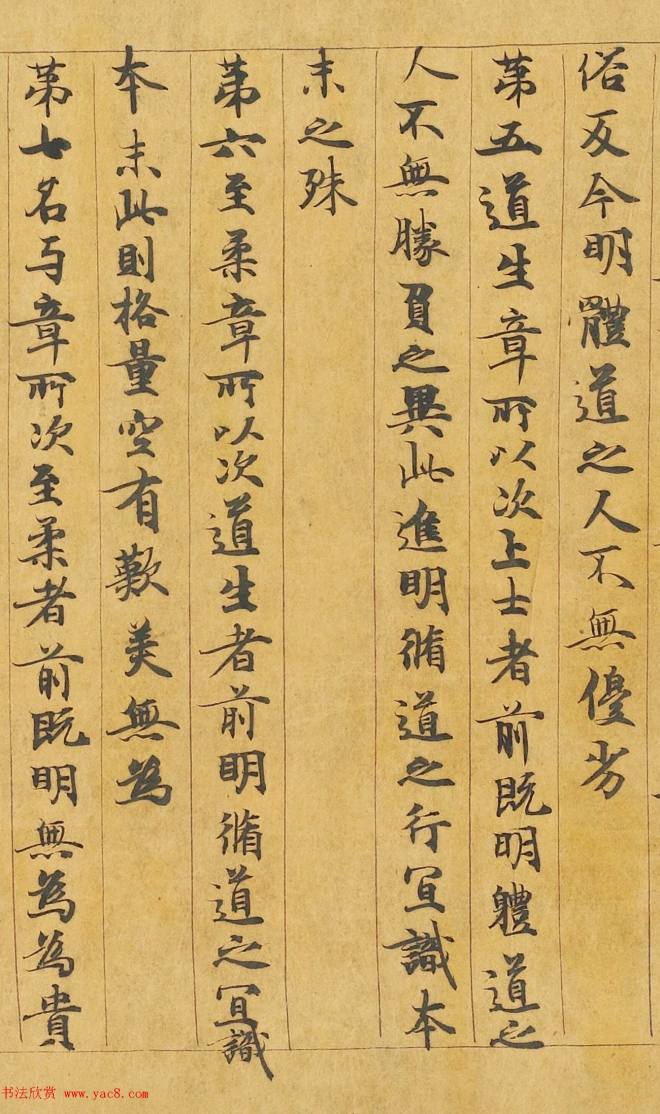 俗反今明體道之人不無優劣
第五道生章所以次上士者前既明軆道之
人不無勝負之異此進明脩道之行宜識本
末之殊
第六至柔章所以次道生者前明脩道之宜識
本末此則格量空有歎美無為
第七名与章所次至柔者前既明無為為貴
书法欣赏 www.yac8.com